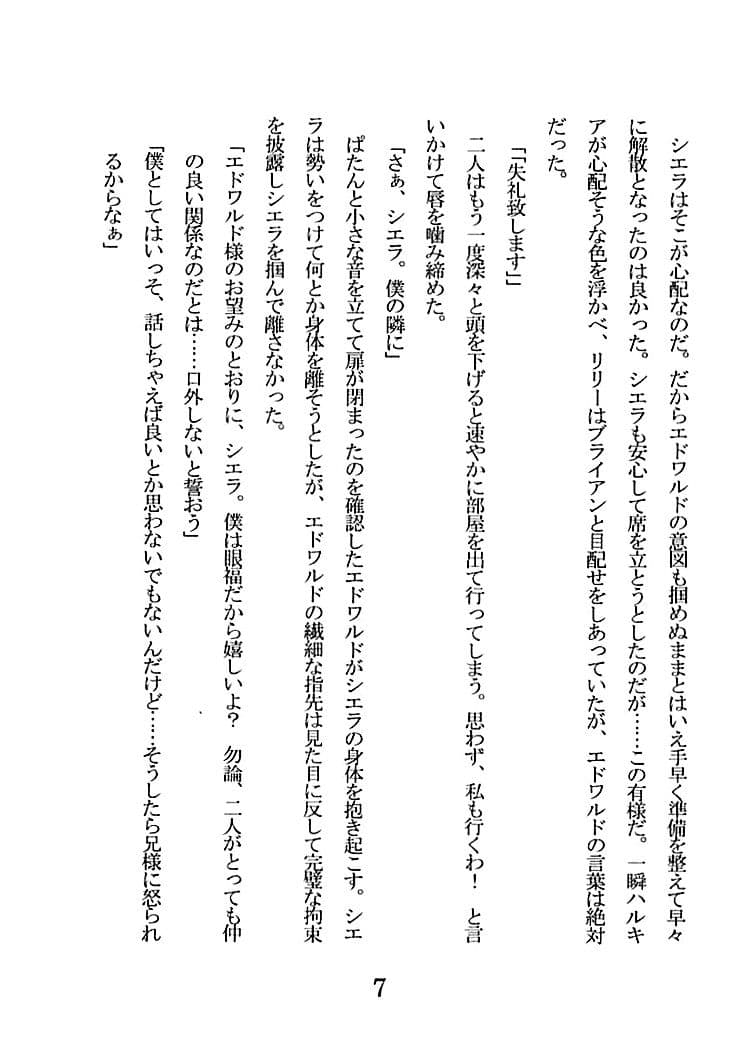 シエラはそこが心配なのだ。だからエドワルドの意図も掴めぬままとはいえ手早く準備を整えて早々
に解散となったのは良かった。シエラも安心して席を立とうとしたのだが……この有様だ。一瞬ハルキ
アが心配そうな色を浮かべ、リリーはブライアンと目配せをしあっていたが、エドワルドの言葉は絶対
だった。
「「失礼致します」」
　二人はもう一度深々と頭を下げると速やかに部屋を出て行ってしまう。思わず、私も行くわ！　と言
いかけて唇を噛み締めた。
「さぁ、シエラ。僕の隣に」
　ぱたんと小さな音を立てて扉が閉まったのを確認したエドワルドがシエラの身体を抱き起こす。シエ
ラは勢いをつけて何とか身体を離そうとしたが、エドワルドの繊細な指先は見た目に反して完璧な拘束
を披露しシエラを掴んで離さなかった。
「エドワルド様のお望みのとおりに、シエラ。僕は眼福だから嬉しいよ？　勿論、二人がとっても仲
の良い関係なのだとは……口外しないと誓おう」
「僕としてはいっそ、話しちゃえば良いとか思わないでもないんだけど……そうしたら兄様に怒られ
るからなぁ」
7